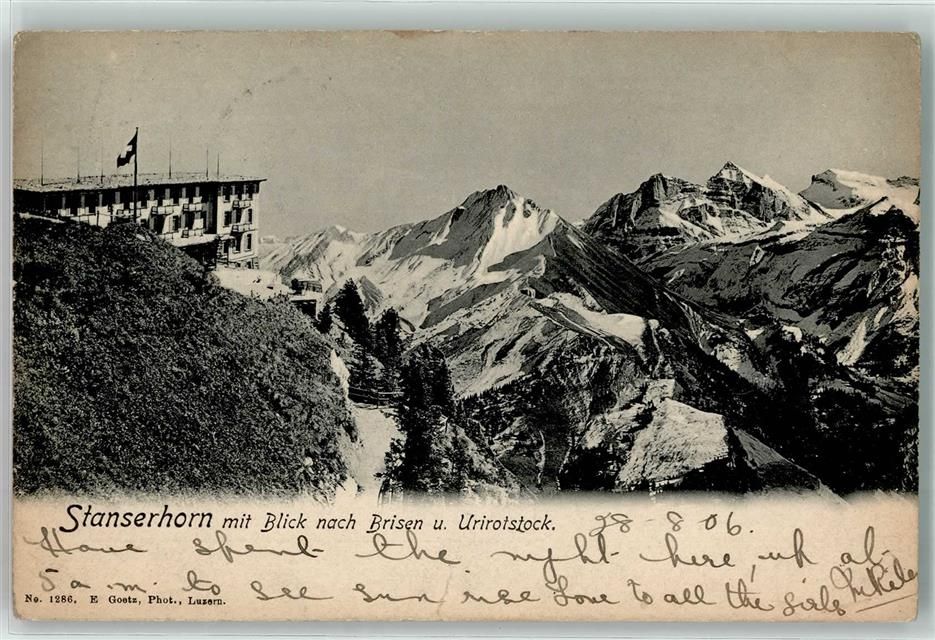 Stanserhorn mit Blick nach Brisen u. Urirotstock.
28-8-06.
Have spent the night here, up at
5 a.m. to see sun rise Love to all the girls
No. 1286. E Goetz, Phot., Luzern.